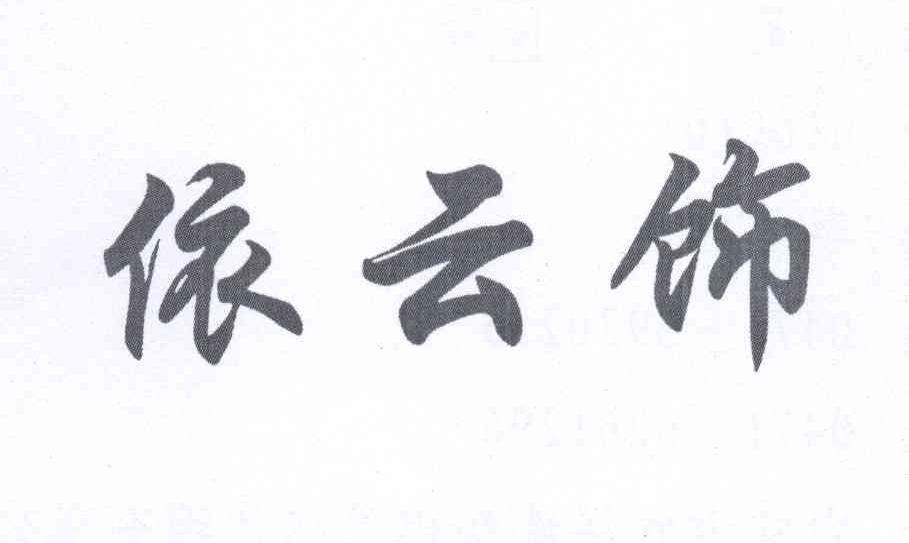 依云饰